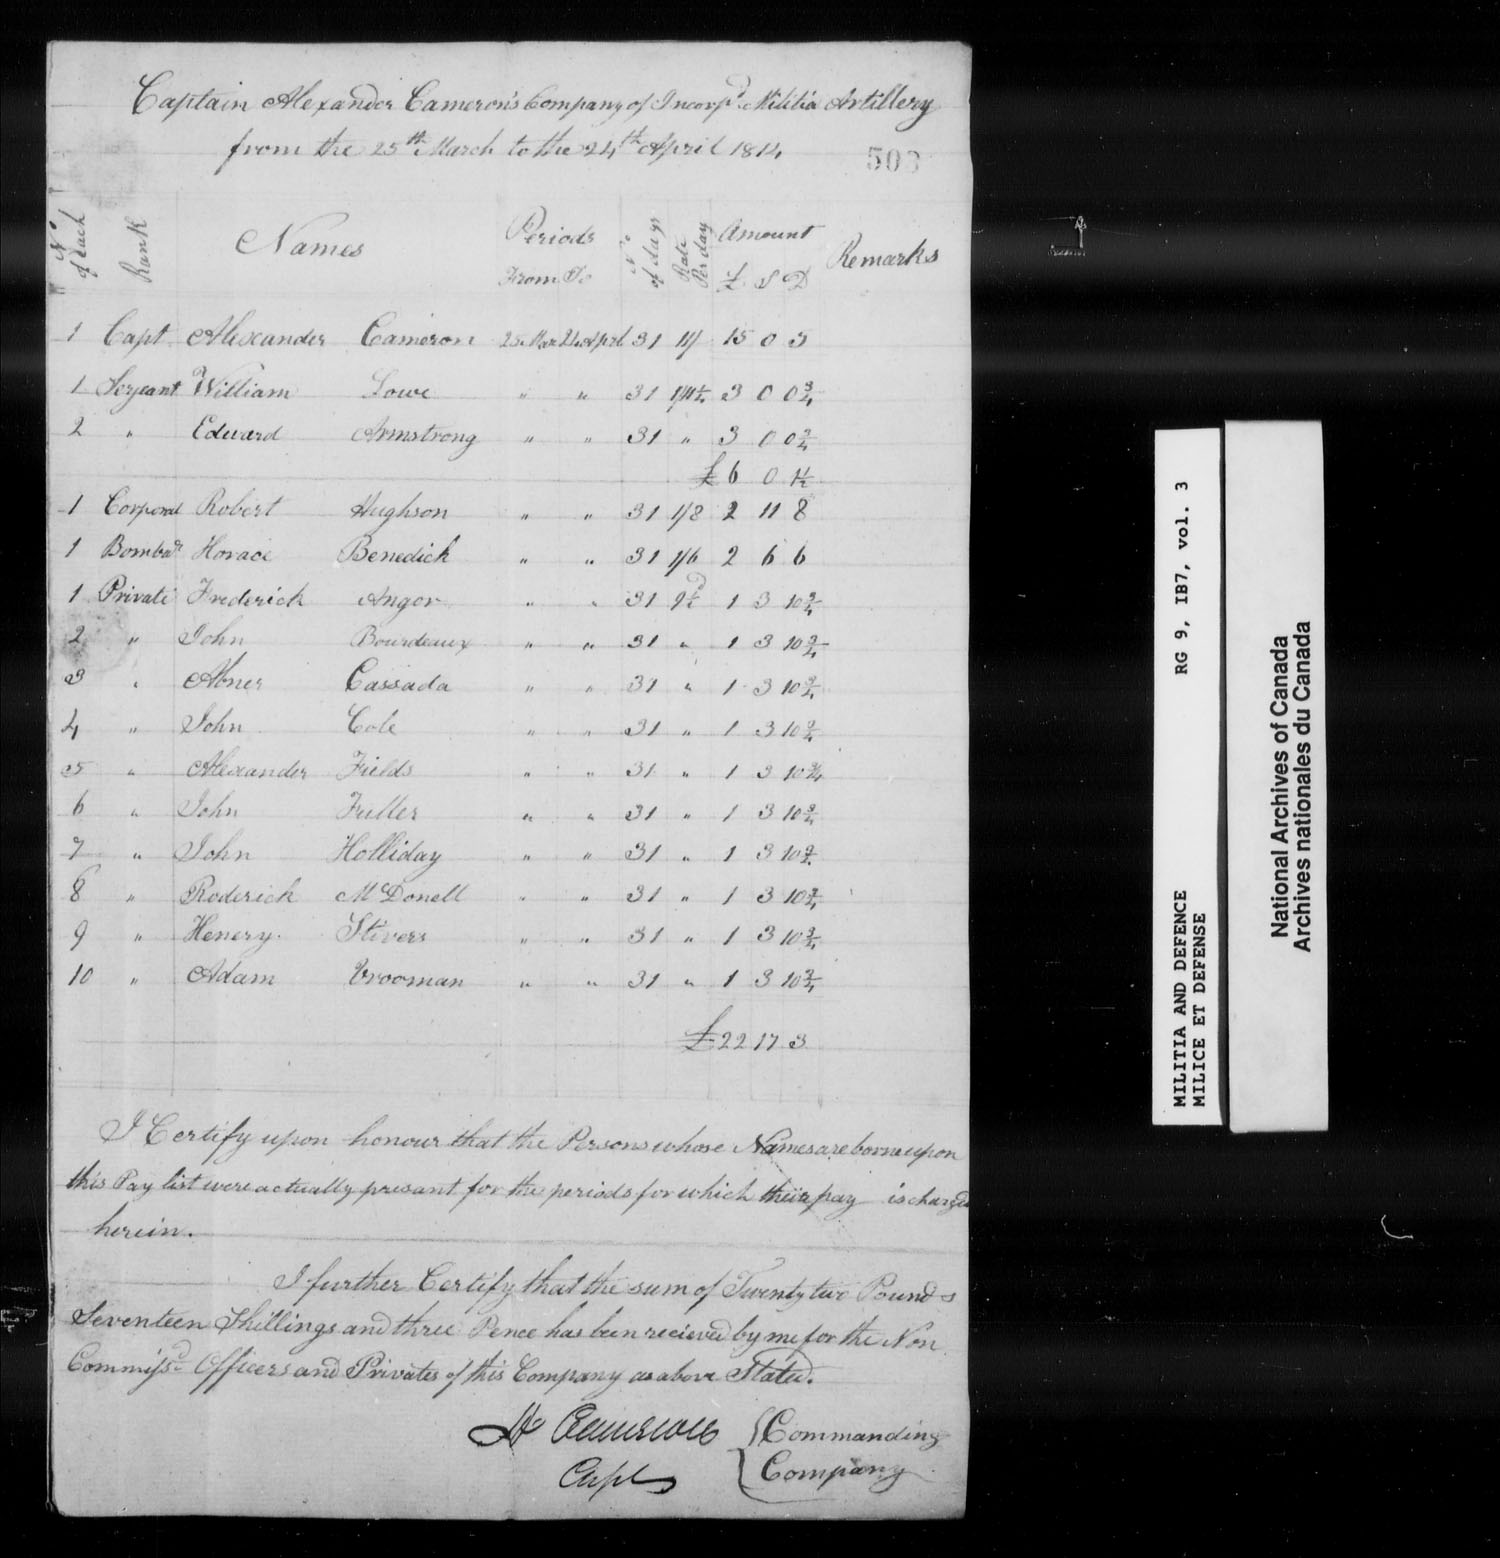 Captain Alexander Cameron's Company of Incorpd. Militia Artillery
from the 25th March to the 24th April 1814
503
No. of Each Rank Names Periods From To No. of days Rate Per day Amount £ S D Remarks
1 Capt Alexander Cameron 25 Mar 24 Aprl 31 11/ 15 0 5
1 Serjeant William Lowe " " 31 1/11¼ 3 0 0¾
2 " Edward Armstrong " " 31 " 3 0 0¾
£ 6 0 1½
1 Corporal Robert Hughson " " 31 1/8 2 11 8
1 Bombadr Horace Benedick " " 31 1/6 2 6 6
1 Private Frederick Anger " " 31 9¼d 1 3 10¾
2 " John Bourdeaux " " 31 " 1 3 10¾
3 " Abner Cassada " " 31 " 1 3 10¾
4 " John Cole " " 31 " 1 3 10¾
5 " Alexander Fields " " 31 " 1 3 10¾
6 " John Fuller " " 31 " 1 3 10¾
7 " John Holliday " " 31 " 1 3 10¾
8 " Roderick McDonell " " 31 " 1 3 10¾
9 " Henery Stivers " " 31 " 1 3 10¾
10 " Adam Vrooman " " 31 " 1 3 10¾
£ 22 17 3
I Certify upon honour that the Persons whose Names are borne upon
this Pay list were actually presant for the periods for which their pay is charged
herein.
I further Certify that the sum of Twenty two Pounds
Seventeen Shillings and three Pence has been recieved by me for the Non
Commissd. Officers and Privates of this Company as above Stated.
A Cameron Commanding
Capt Company
MILITIA AND DEFENCE RG 9, IB7, vol. 3
MILICE ET DEFENSE
National Archives of Canada
Archives nationales du Canada